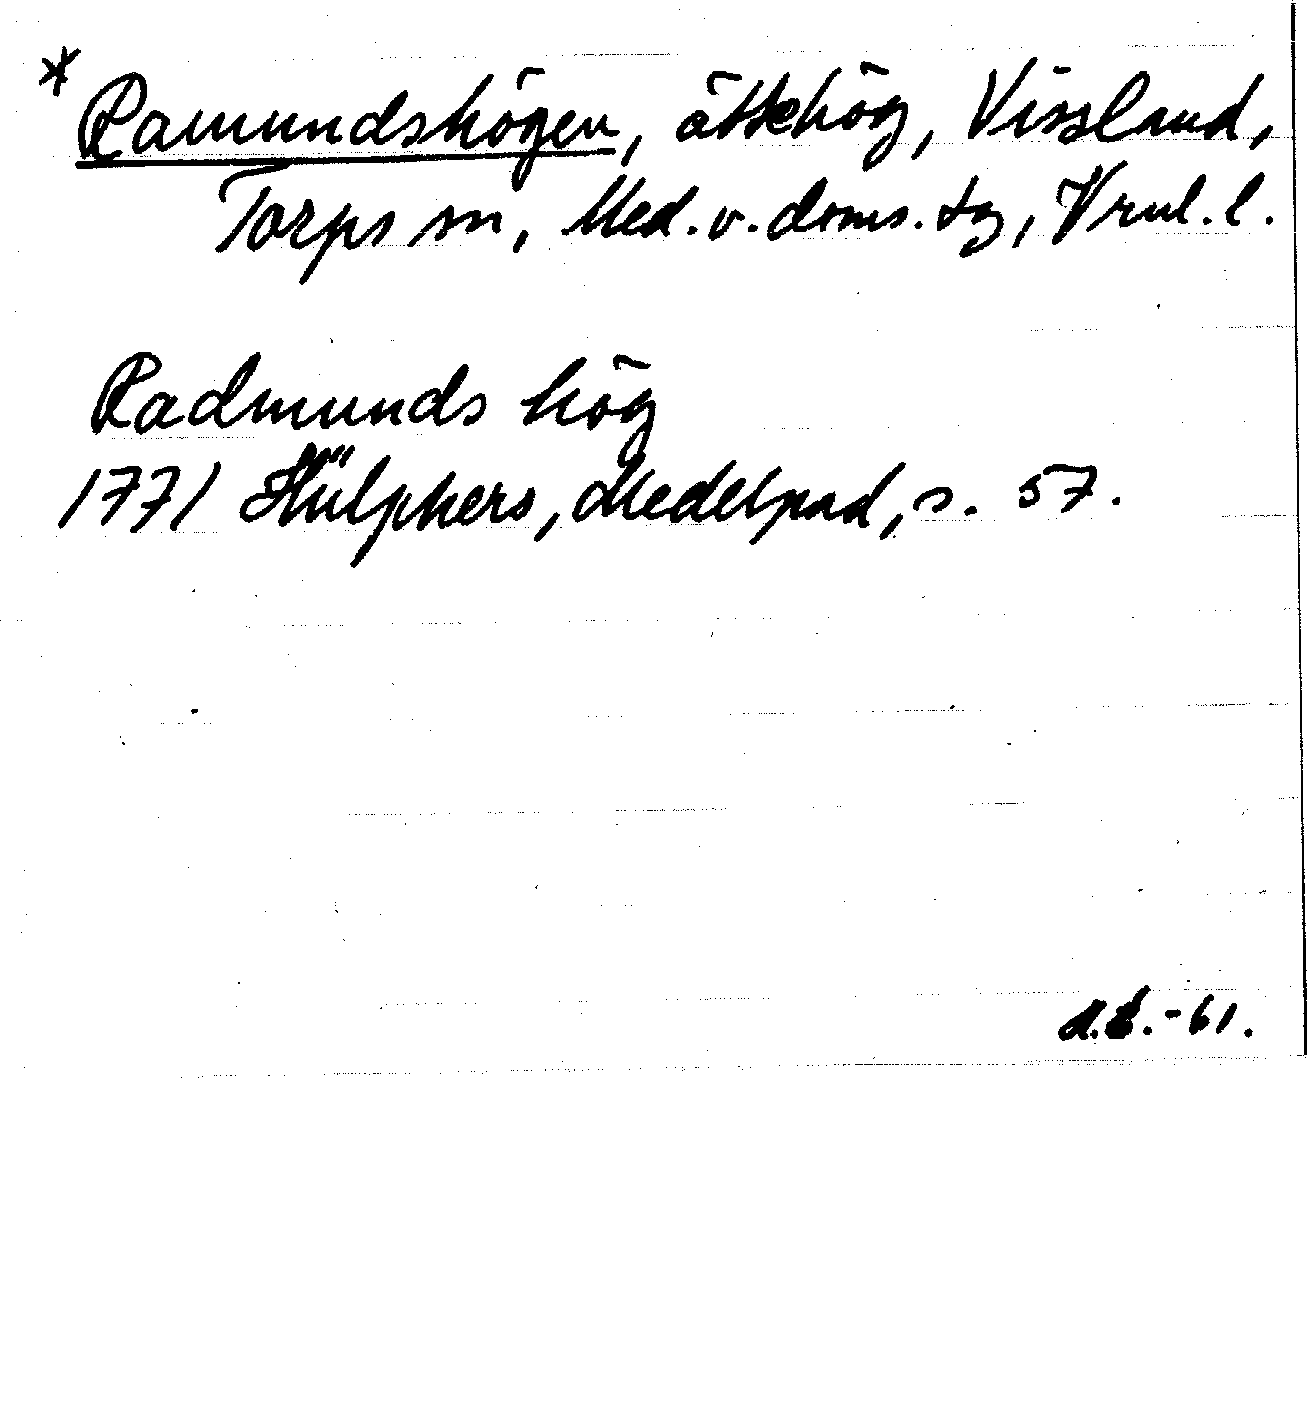 * Ramundshögen, ättehög, Vissland,
Torps sn, Med. v. doms. tg, Vrnl. l.
Radmunds hög
1771 Hülphers, Medelpad, s. 57.
-61.